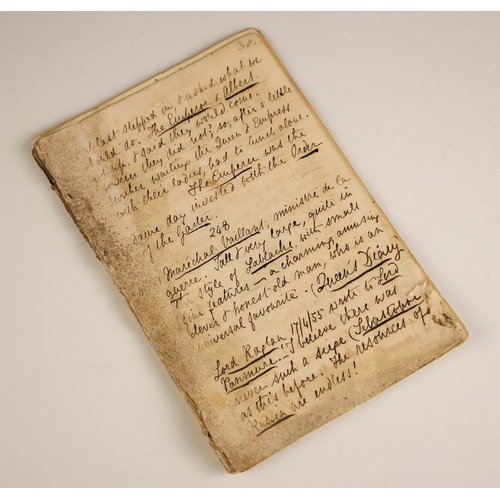 30.
I last stepped in, & asked what we
could do. The Emperor & Albert
got up & said they would come.
However they did not? so, after a little
further waiting the Queen & Empress
with their ladies, had to lunch alone.
The Emperor was the
same day invested with the Order
of the Garter.
248
Marechal Vaillant, ministre de la
guerre. Tall & very large, quite in
the style of Lablache, with small
fine features — a charming, amusing
clever & honest old man, who is an
universal favourite. (Queen's Diary)
Lord Raglan 17/4/55 wrote to Lord
Panmure "I believe there was
never such a siege (Sebastopol)
as this before. The resources of
Russia are endless!